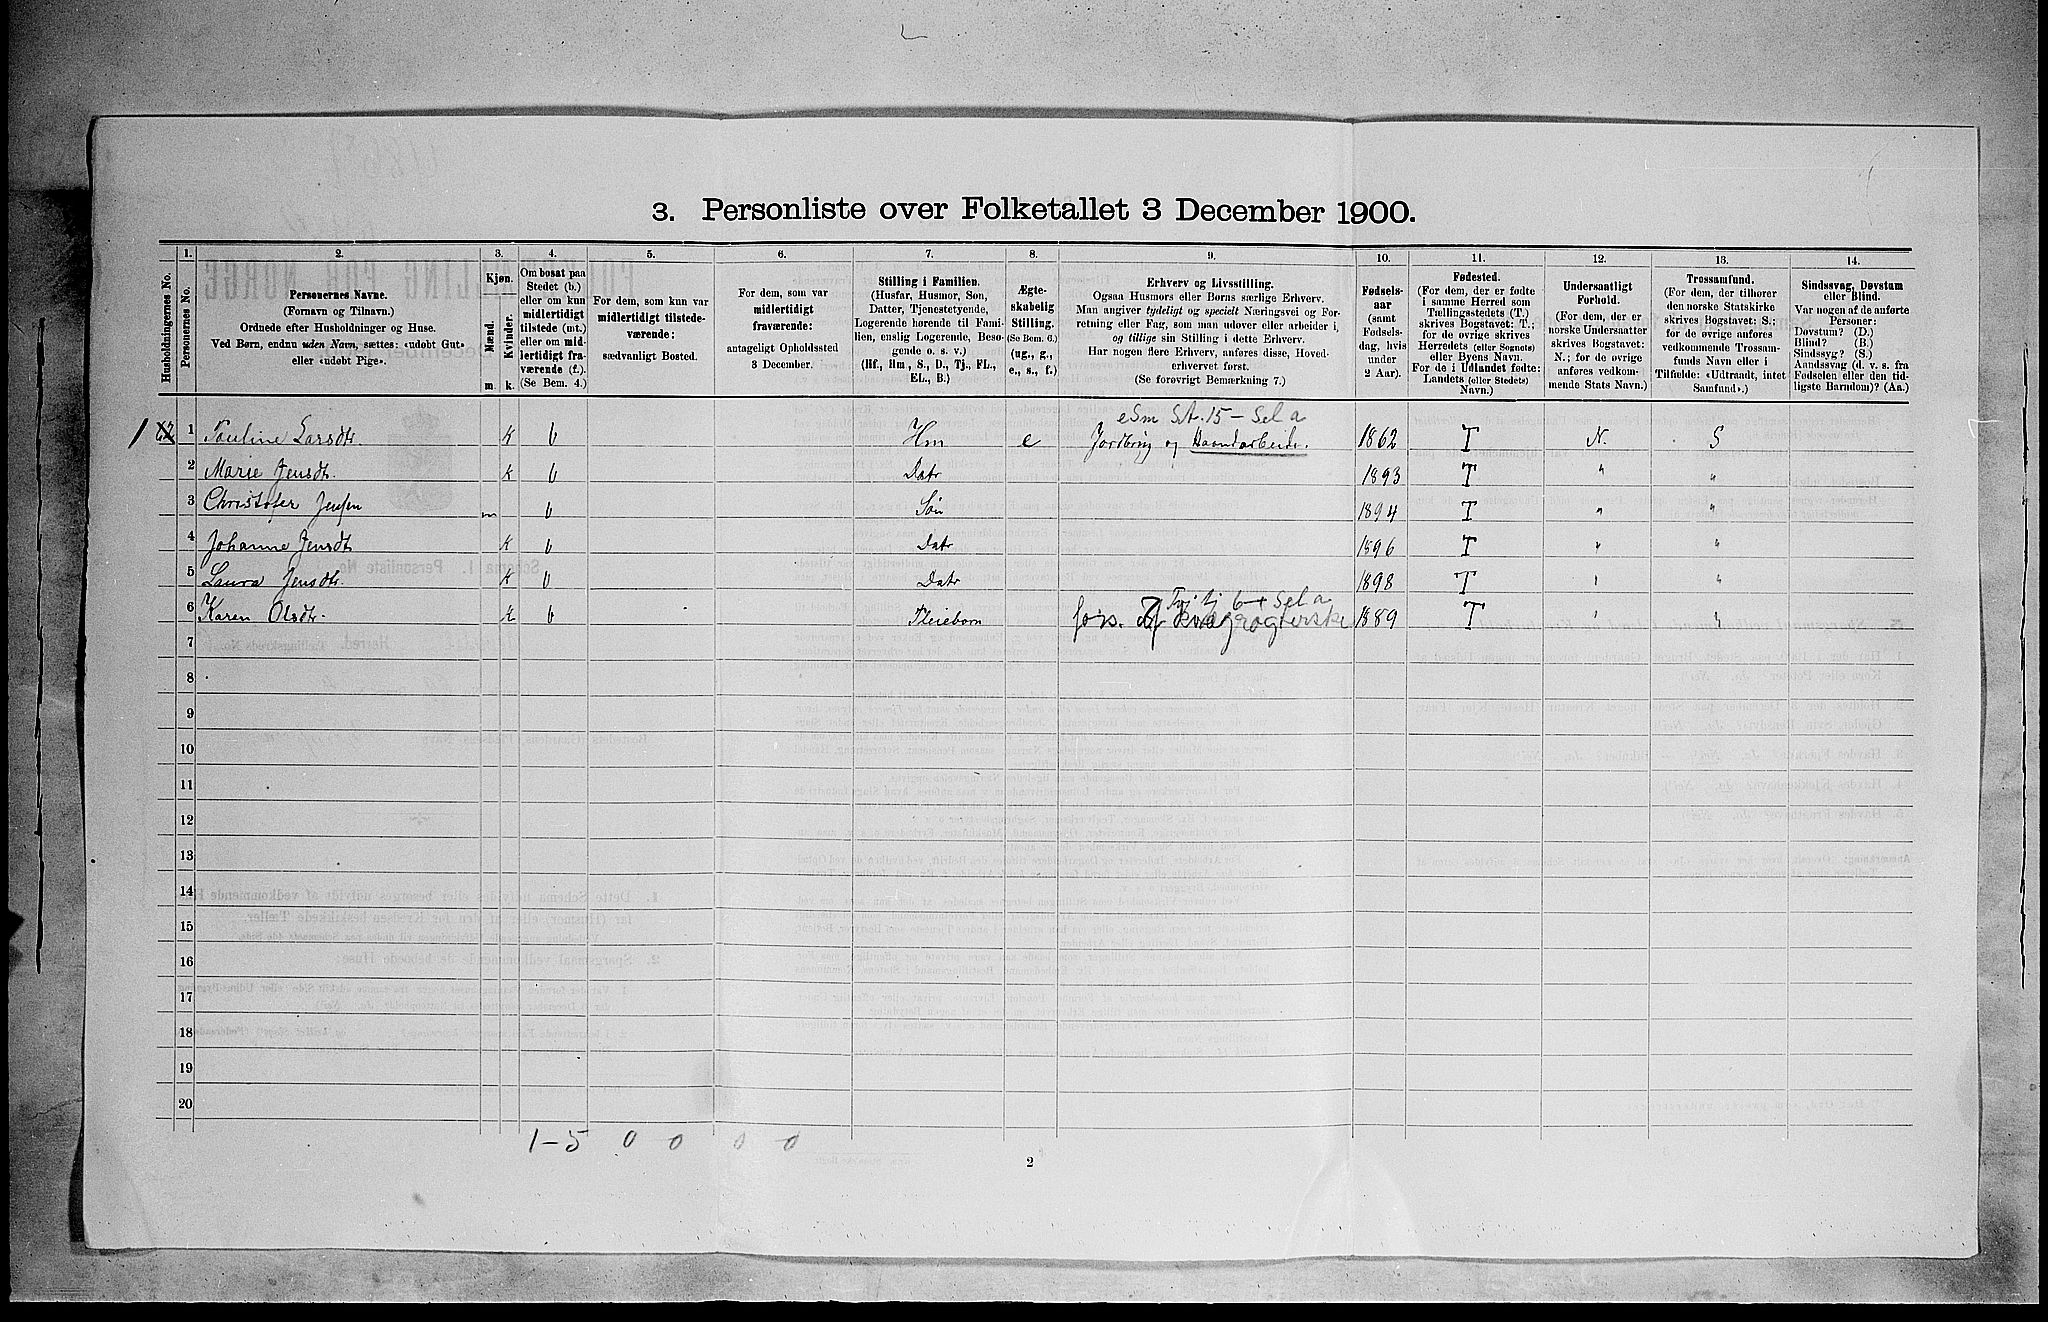 3. Personliste over Folketallet 3 December 1900.
Husholdningernes No.
1.
Personernes No.
2.
Personernes Navne.
(Fornavn og Tilnavn.)
Ordnede efter Husholdninger og Huse.
Ved Børn, endnu uden Navn, sættes: «udøbt Gut»
eller «udøbt Pige».
3.
Kjøn.
Mænd.
Kvinder.
m. k.
4.
Om bosat paa
Stedet (b.)
eller om kun
midlertidigt
tilstede (mt.)
eller om mid-
lertidigt fra-
værende (f.).
(Se Bem. 4.)
5.
For dem, som kun var
midlertidigt tilstede-
værende:
sædvanligt Bosted.
6.
For dem, som var
midlertidigt
fraværende:
antageligt Opholdssted
3 December.
7.
Stilling i Familien.
(Husfar, Husmor, Søn,
Datter, Tjenestetyende,
Logerende hørende til Fami-
lien, enslig Logerende, Besø-
gende o. s. v.)
(Hf., Hm., S., D., Tj., FL.,
EL., B.)
8.
Ægte-
skabelig
Stilling.
(Se Bem. 6.)
(ug., g.,
e., s., f.)
9.
Erhverv og Livsstilling.
Ogsaa Husmors eller Børns særlige Erhverv.
Man angiver tydeligt og specielt Næringsvei og For-
retning eller Fag, som man udøver eller arbeider i,
og tillige sin Stilling i dette Erhverv.
Har nogen flere Erhverv, anføres disse, Hoved-
erhvervet først.
(Se forøvrigt Bemærkning 7.)
10.
Fødsels-
aar
(samt
Fødsels-
dag, hvis
under
2 Aar).
11.
Fødested.
(For dem, der er fødte
i samme Herred som
Tællingsstedets (T.)
skrives Bogstavet: T.;
for de øvrige skrives
Herredets (eller Sognets)
eller Byens Navn.
For de i Udlandet fødte:
Landets (eller Stedets)
Navn.)
12.
Undersaatligt
Forhold.
(For dem, der er
norske Undersaatter
skrives Bogstavet:
N.; for de øvrige
anføres vedkom-
mende Stats Navn.)
13.
Trossamfund.
(For dem, der tilhører
den norske Statskirke
skrives Bogstavet: S.;
for de øvrige anføres
vedkommende Trossam-
funds Navn eller i
Tilfælde: «Udtraadt, intet
Samfund».)
14.
Sindssvag, Døvstum
eller Blind.
Var nogen af de anførte
Personer:
Døvstum? (D.)
Blind? (B.)
Sindssyg? (S.)
Aandssvag (d. v. s. fra
Fødselen eller den tid-
ligste Barndom)? (Aa.)
Sm St. 15 - Sel a
1 1 Pauline Larsdtr. K b Hm e Jordbrug og Haandarbeide. 1862 T N. S
2 Marie Jensdtr. K b Datr 1893 T " "
3 Christofer Jensen m b Søn 1894 T " "
4 Johanne Jensdtr K b Datr 1896 T " "
5 Laura Jensdtr. K b Datr 1898 T " "
Tj 6 + Sel a
6 Karen Olsdtr. K b Pleiebarn fors. af Kvægrøgterske 1889 T " "
7
8
9
10
11
12
13
14
15
16
17
18
19
20
1-5 0 0 0 0
2